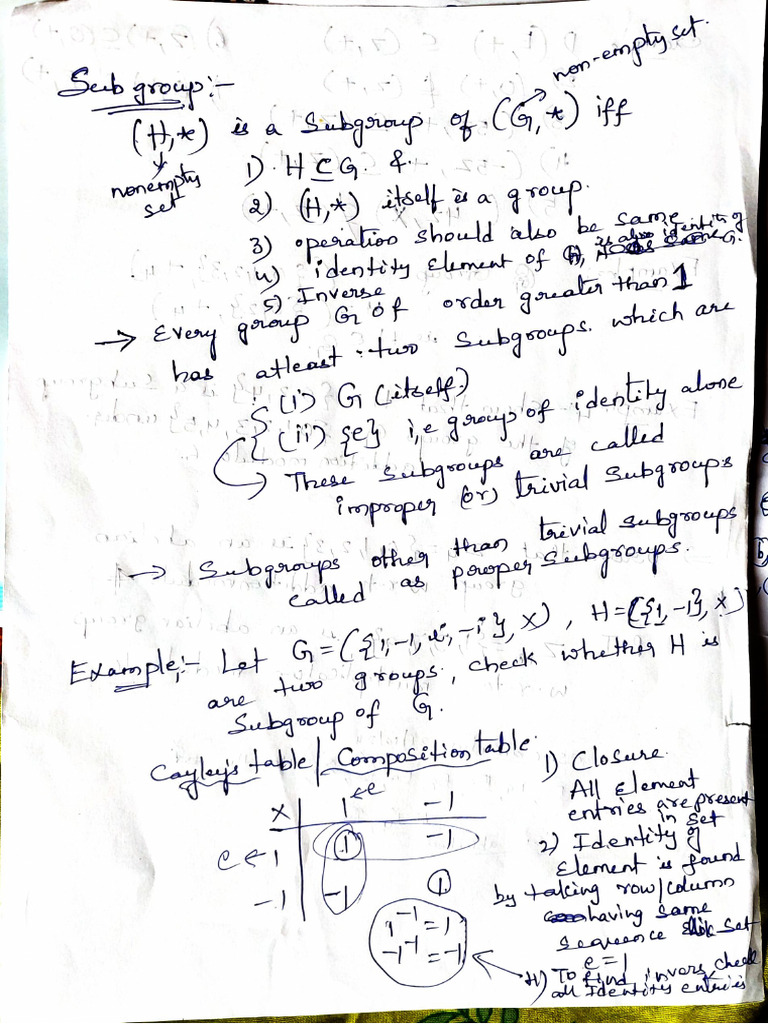 non-empty set.
Subgroup:-
(H,*) is a Subgroup of (G,*) iff
nonempty set
1) H ⊆ G. &
2) (H,*) itself is a group.
3) operation should also be same
4) identity element of H, is also identity of G.
5) Inverse
→ Every group G of order greater than 1
has atleast two Subgroups. which are
(i) G (itself)
(ii) {e} i,e group of identity alone
→ These Subgroups are called
improper (or) trivial Subgroups
→ Subgroups other than trivial subgroups
called as proper Subgroups.
Example:- Let G=({1,-1,i,-i},×), H=({1,-1},×)
are two groups, check whether H is
Subgroup of G.
Cayley's table | Composition table.
× | 1 ←e -1
e←1 | 1 -1
-1 | -1 1
1⁻¹=1
-1⁻¹=-1
1) Closure.
All element
entries are present
in set
2) Identity
element is found
by taking row/column
having same
sequence set
e=1
4) To find invers, check
all Identity entries